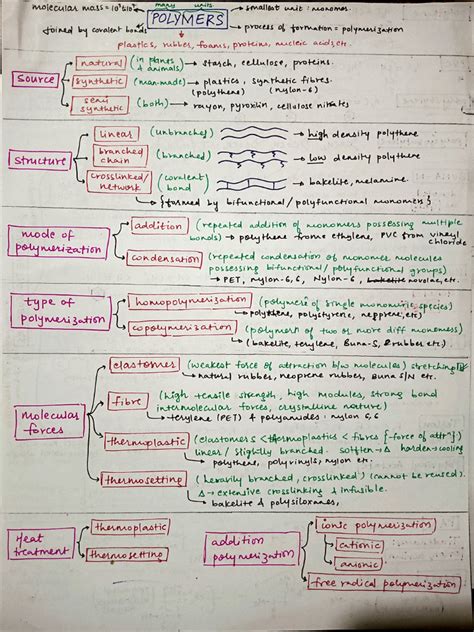 many units
molecular mass = 10³-10⁷ POLYMERS → smallest unit : monomer
joined by covalent bonds → process of formation = polymerization
→ plastics, rubber, foams, proteins, nucleic acids etc.
Source
natural (in plants & animals) → starch, cellulose, proteins.
synthetic (man-made) → plastics, synthetic fibres.
(polythene) (nylon-6)
semi synthetic (both) → rayon, pyroxilin, cellulose nitrates
Structure
linear (unbranched) → high density polythene
branched chain (branched) → low density polythene
crosslinked/ network (covalent bond → bakelite, melamine.
{formed by bifunctional/polyfunctional monomers}
mode of polymerization
addition (repeated addition of monomers possessing multiple
bonds) → polythene from ethylene, PVC from vineyl chloride
condensation (repeated condensation of monomer molecules
possessing bifunctional/polyfunctional groups)
→ PET, nylon-6,6, Nylon-6, bakelite novolac, etc.
type of polymerization
homopolymerization (polymeric of single monomeric species)
→ polythene, polystyrene, neoprene, etc)
copolymerization (polymers of two or more diff monomers)
(bakelite, terylene, Buna-S, rubber)
molecular forces
elastomer (weakest force of attraction b/w molecules) stretching
→ natural rubber, neoprene rubber, Buna S/N etc.
fibre (high tensile strength, high modulus, strong bond
intermolecular forces, crystalline nature)
→ terylene (PET) & polyamides. nylon 6,6
thermoplastic (elastomers < thermoplastics < fibres {force of attrⁿ})
linear / slightly branched. soften-Δ harden-cooling
polythene, polyvinyls, nylon etc.
thermosetting (heavily branched, crosslinked) (cannot be reused).
Δ → extensive crosslinking & infusible.
→ bakelite & polysiloxanes,
Heat treatment
thermoplastic
thermosetting
addition polymerization
ionic polymerization
cationic
anionic
free radical polymerization